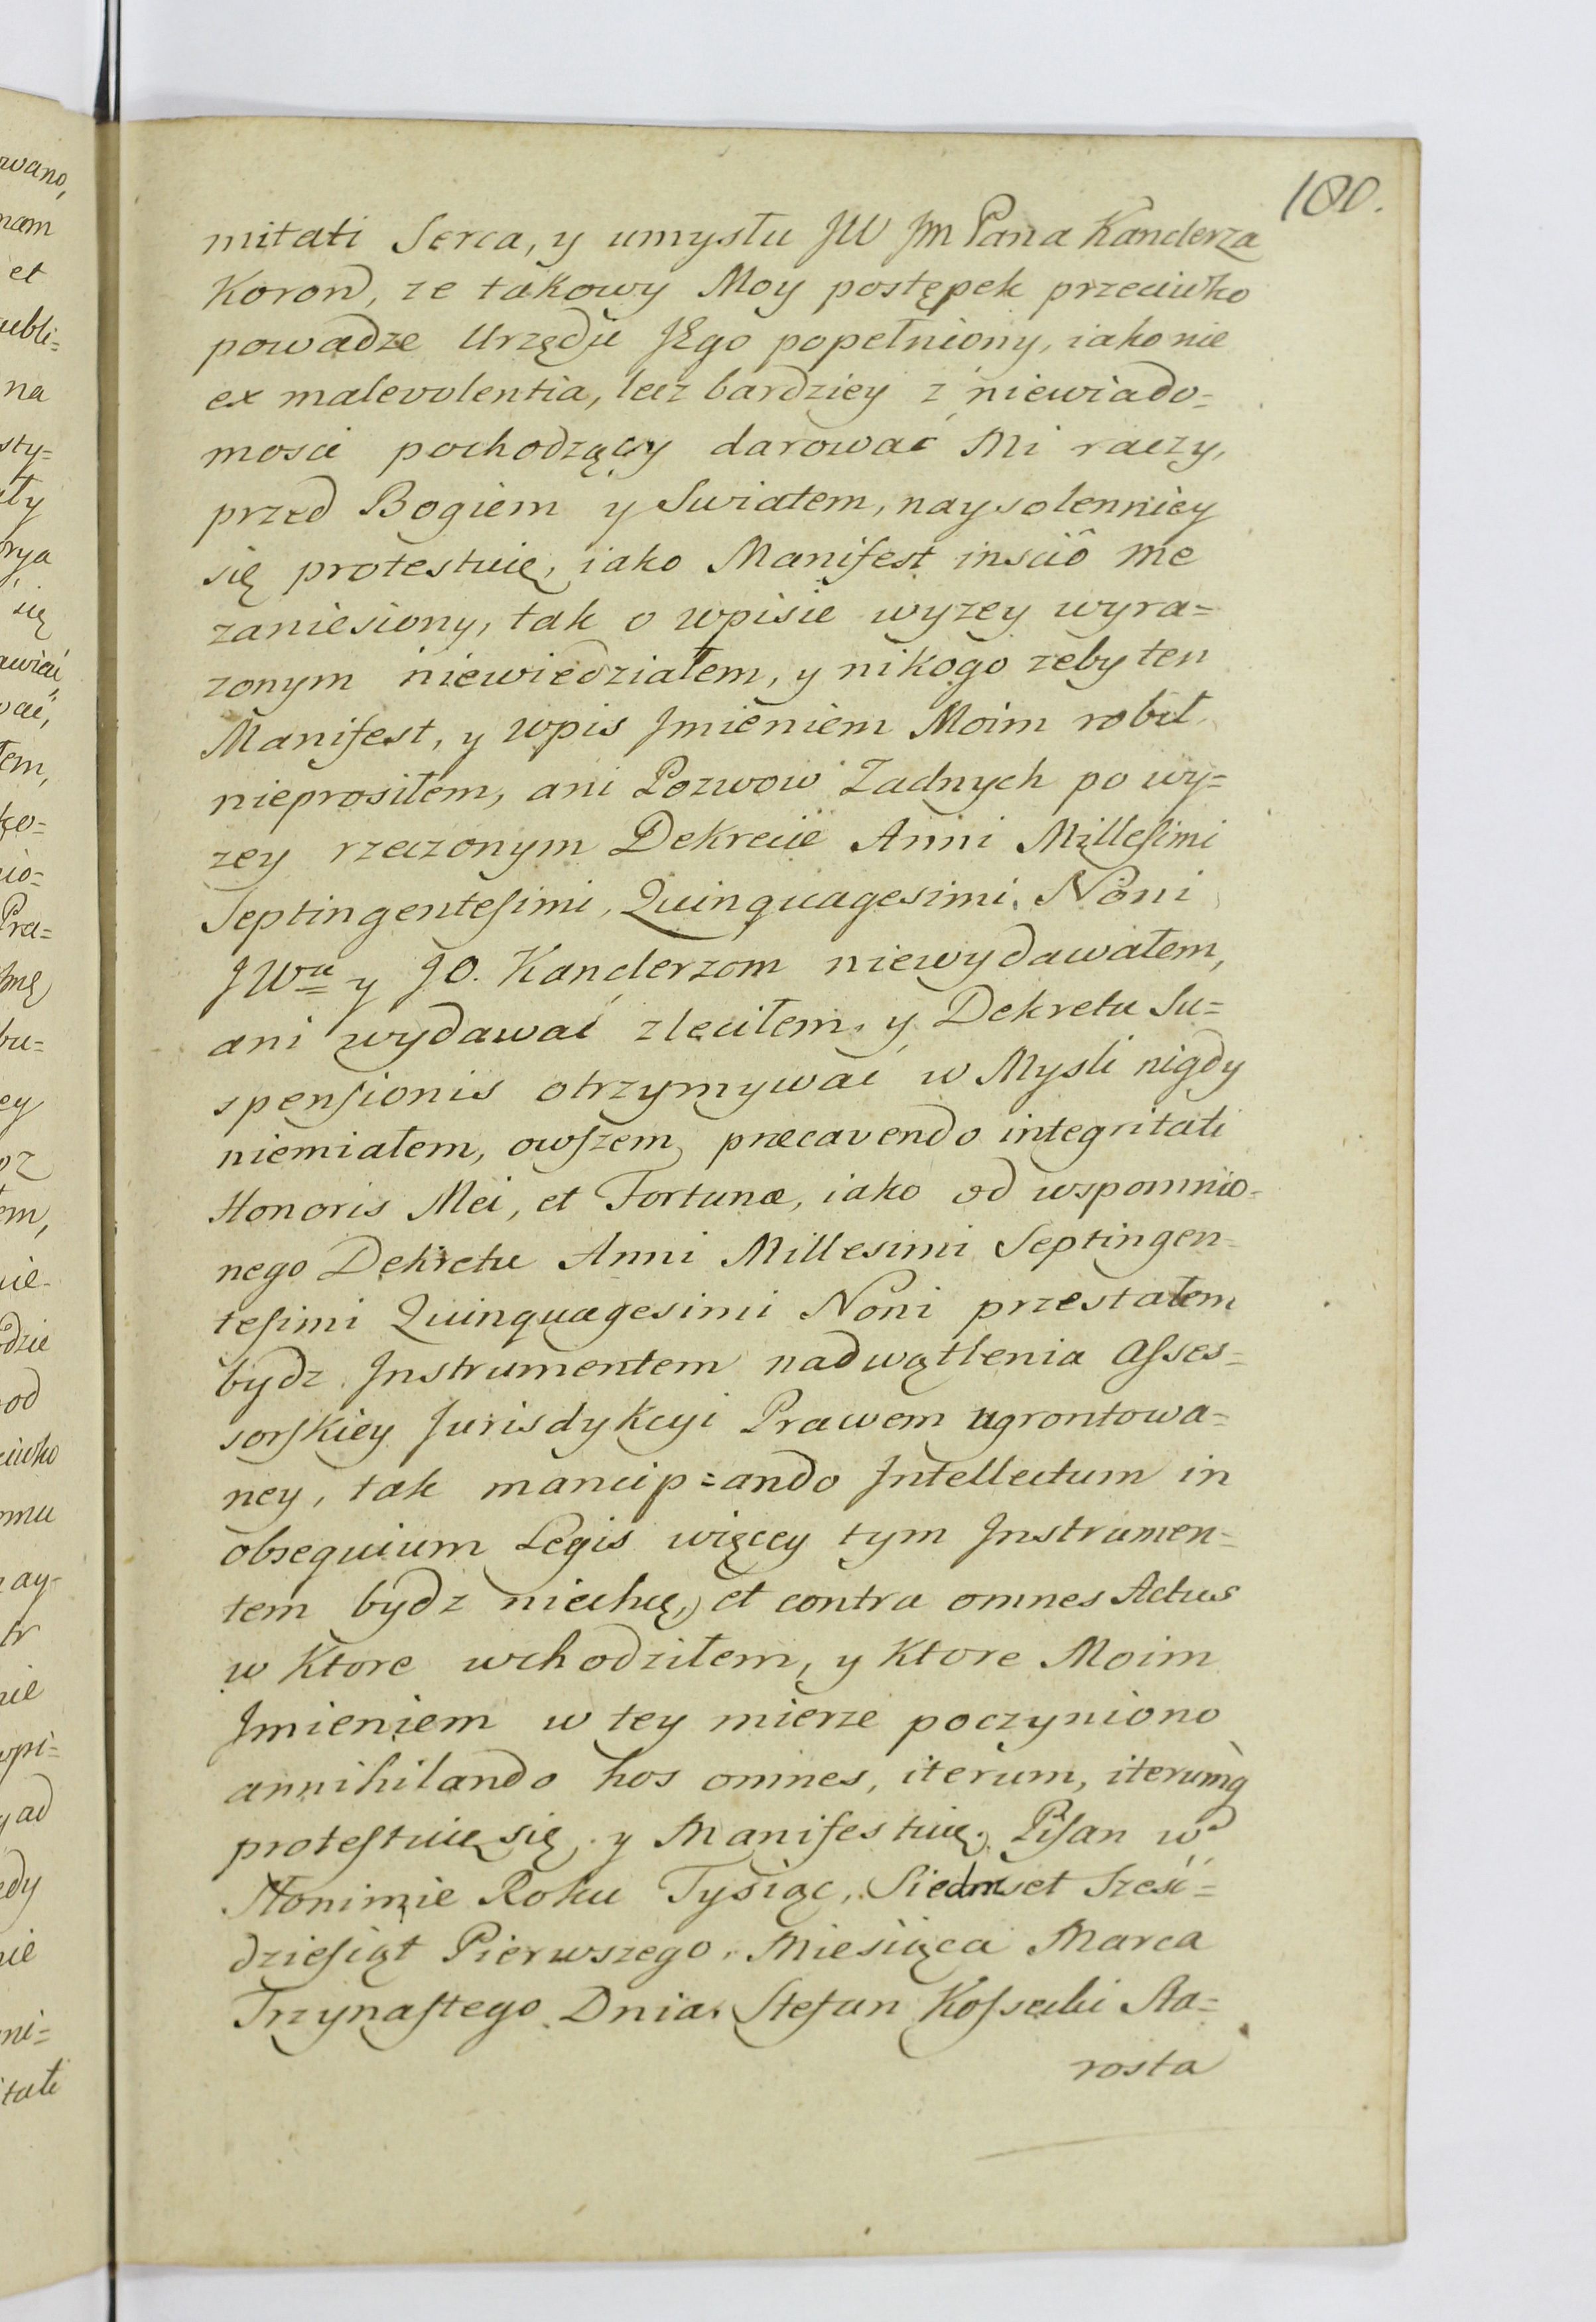 180.
mitati Serca, y umysłu JW Jm Pana Kanclerza
Koron, ze takowy Moy postępek przeciwko
powadze Urzędu JEgo popełniony, iako nie
ex malevolentia, lecz bardziey z niewiado=
mosci pochodzący darować Mi raczy,
przed Bogiem y Swiatem, naysolenniey
się protestuię, iako Manifest insciô me
zaniesiony, tak o wpisie wyzey wyra=
zonym niewiedziałem, y nikogo zeby ten
Manifest, y wpis Jmieniem Moim robił
nieprosiłem, ani Pozwow Zadnych po wy=
zey rzeczonym Dekrecie Anni Millesimi
Septingentesimi, Quinquagesimi, Noni
JWu y JO. Kanclerzom niewydawałem,
ani wydawać zleciłem, y Dekretu Su=
spensionis otrzymywać w Mysli nigdy
niemiałem, owszem, præcavendo integritati
Honoris Mei, et Fortunæ, iako od wspomnio=
nego Dekretu Anni Millesimi Septingen=
tesimi Quinquagesimi Noni przestałem
bydz Instrumentem nadwątlenia Asses=
sorskiey Jurisdykcyi Prawem ugrontowa=
ney, tak mancip=ando Intellectum in
obsequium Legis więcey tym Instrumen=
tem bydz niechcę, et contra omnes Actus
w Ktore wchodziłem, y Ktore Moim
Jmieniem w tey mierze poczyniono
annihilando hos omnes, iterum, iterumq
protestuię się y Manifestuię. Pisan w
Słonimie Roku Tysiąc, Siedmset Szesć=
dziesiąt Pierwszego, Miesiąca Marca
Trzynastego Dnia. Stefan Kossecki Sta=
rosta
awano,
nam
et
ubli=
na
sty=
ały
się
em,
Pra=
bu=
ey
em,
nie
dzie
od
ciwko
mu
ay=
tr
nie
wpi=
ad
edy
nie
ni=
itati